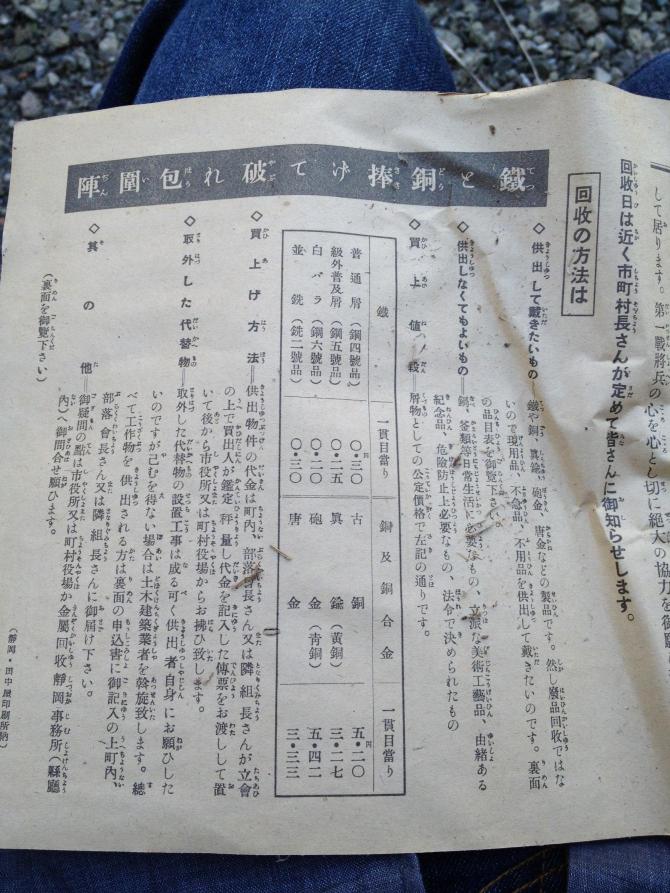 して居ります。第一戰將兵の心を心とし切に絕大の協力を御願
回收の方法は
回收日は近く市町村長さんが定めて皆さんに御知らせします。
鐵と銅捧げて破れ包圍陣
◇供出して戴きたいもの
鐵や銅、眞鍮、砲金、唐金などの製品です。然し廢品回收ではな
いので現用品、不念品、不用品を供出して戴きたいのです。裏面
の品目表を御覽下さい。
◇供出しなくてもよいもの
鍋、釜類等日常生活に必要なもの、立派な美術工藝品、由緒ある
紀念品、危險防止上必要なもの、法令で決められたもの
◇買上値段＝屑物としての公定價格で左記の通りです。
鐵 一貫目當り 銅及銅合金 一貫目當り
普通屑（鋼四號品） 〇・三〇円 古銅 五・二〇円
級外普及屑（鋼五號品） 〇・二五 眞鍮（黃銅） 三・二七
白バラ（鋼六號品） 〇・二〇 砲金（靑銅） 五・四二
並銑（銑二號品） 〇・三〇 唐金 三・三三
◇買上げ方法＝供出物件の代金は町內、部落會長さん又は隣組長さんが立會
の上で買出人が鑑定、秤量し代金を記入した傳票をお渡しして置
いて後から市役所又は町村役場からお拂ひ致します。
◇取外した代替物＝取外した代替物の設置工事は成る可く供出者自身にお願ひした
いのですが已むを得ない場合は土木建築業者を斡旋致します。總
べて工作物を供出される方は裏面の申込書に御記入の上町內、
部落會長さん又は隣組長さんに御屆け下さい。
◇其の他＝御疑問の點は市役所又は町村役場か金屬回收靜岡事務所（縣廳
內）へ御問合せ願ひます。
（裏面を御覽下さい）
（靜岡・田中屋印刷所納）